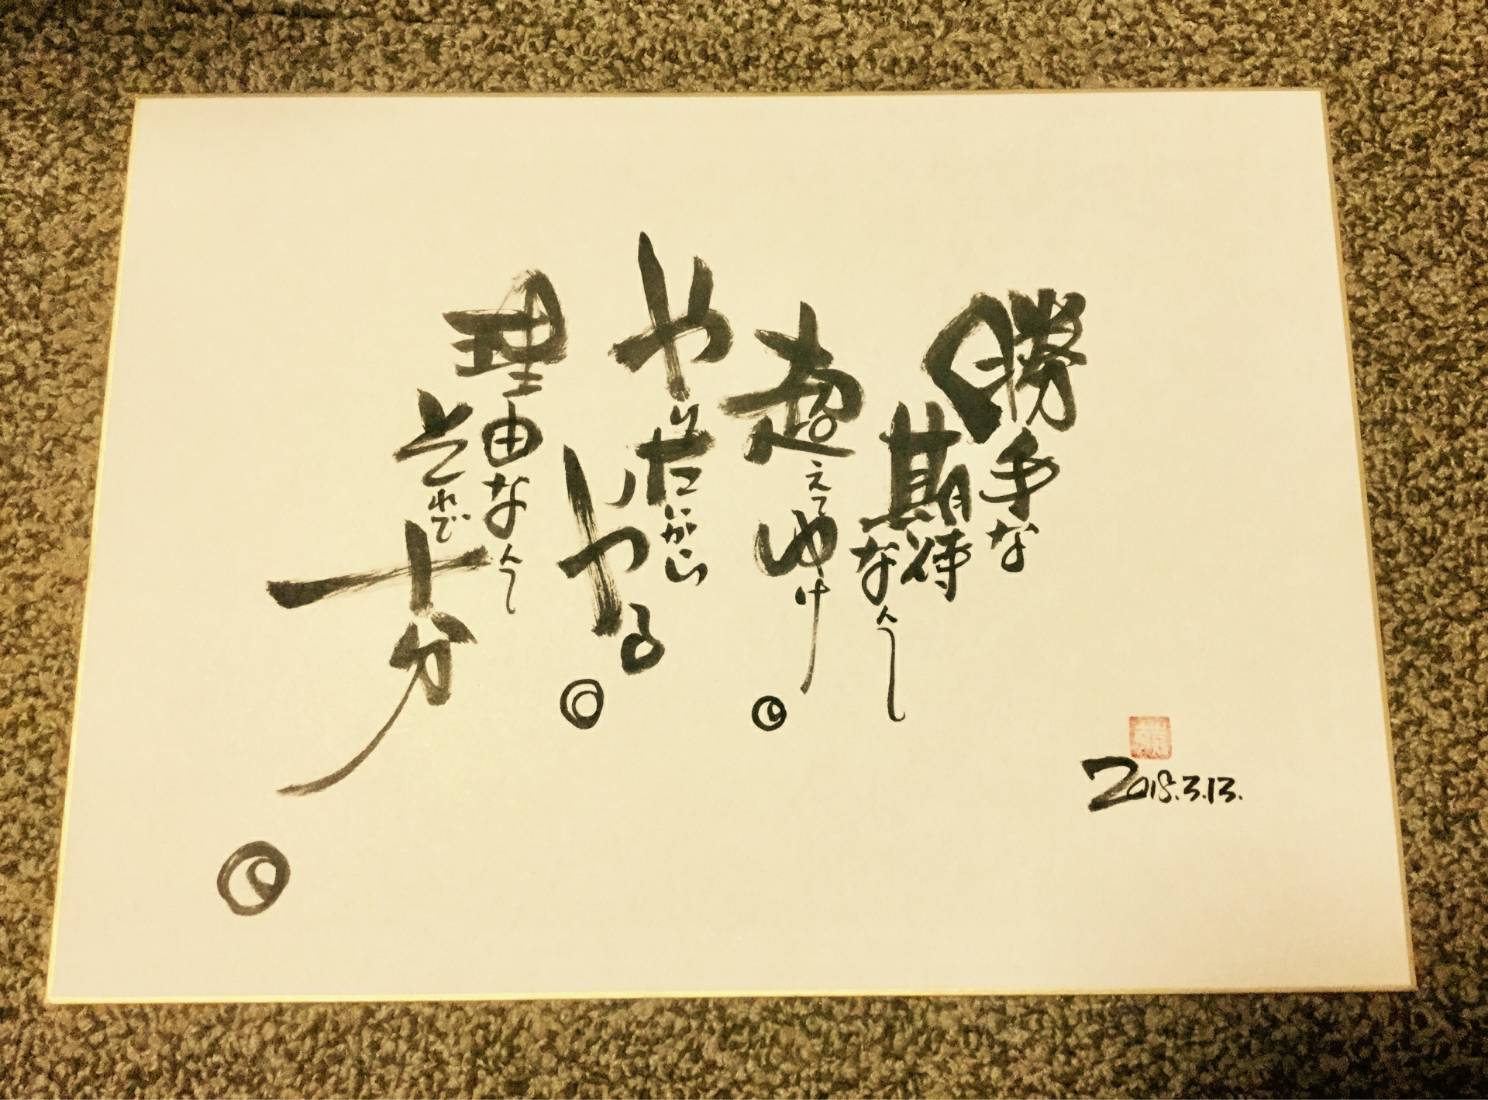 勝手な
期待なんて
超えてゆけ。
やりたいから
しやる。
理由なんて
それで
十分。
2018.3.13.